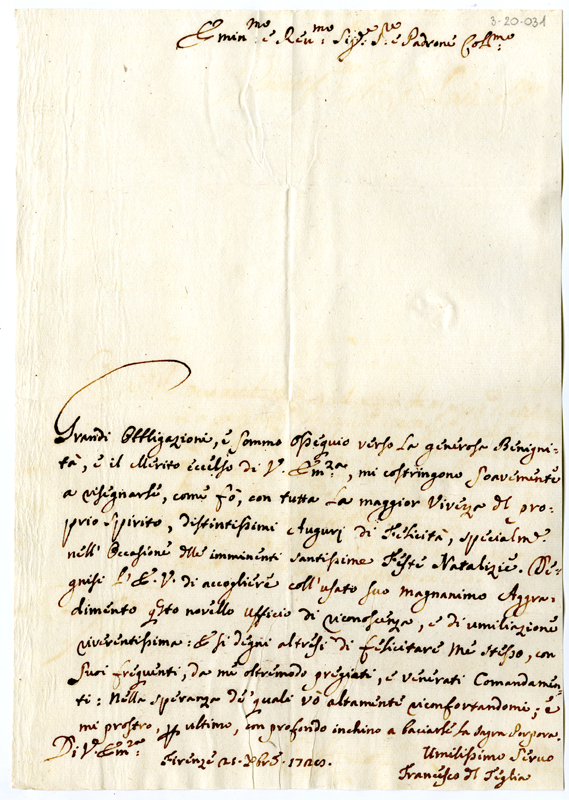 3-20-031
Emin.mo e Reu.mo Sig.re S.re e Padrone Coll.mo
Grandi Obbligazioni, e sommo ossequio verso la generosa Benigni-
tà, e il Merito eccelso di V. Em.za, mi costringono soavemente
a risegnarle, come fò, con tutta la maggior Vivezza dl pro-
prio spirito, distintissimi Augurj di Felicità, specialm.e
nell' Occasione dlle imminenti santissime Feste Natalizie. De-
gnisi l' E. V. di accogliere coll' usato suo magnanimo Aggra-
dimento q.sto novello ufficio di riconoscenza, e di umiliazione
riverentissima: E si degni altresì di felicitare me stesso, con
suoi frequenti, da me oltremodo pregiati, e venerati Comandamen-
ti: Nella speranza de' quali vò altamente riconfortandomi; e
mi prostro, per ultimo, con profondo inchino a baciarle la Sagra Porpora.
Di V.a Em.za
Umilissimo Servo
Firenze 21. Xbre.
Francesco dl Teglia